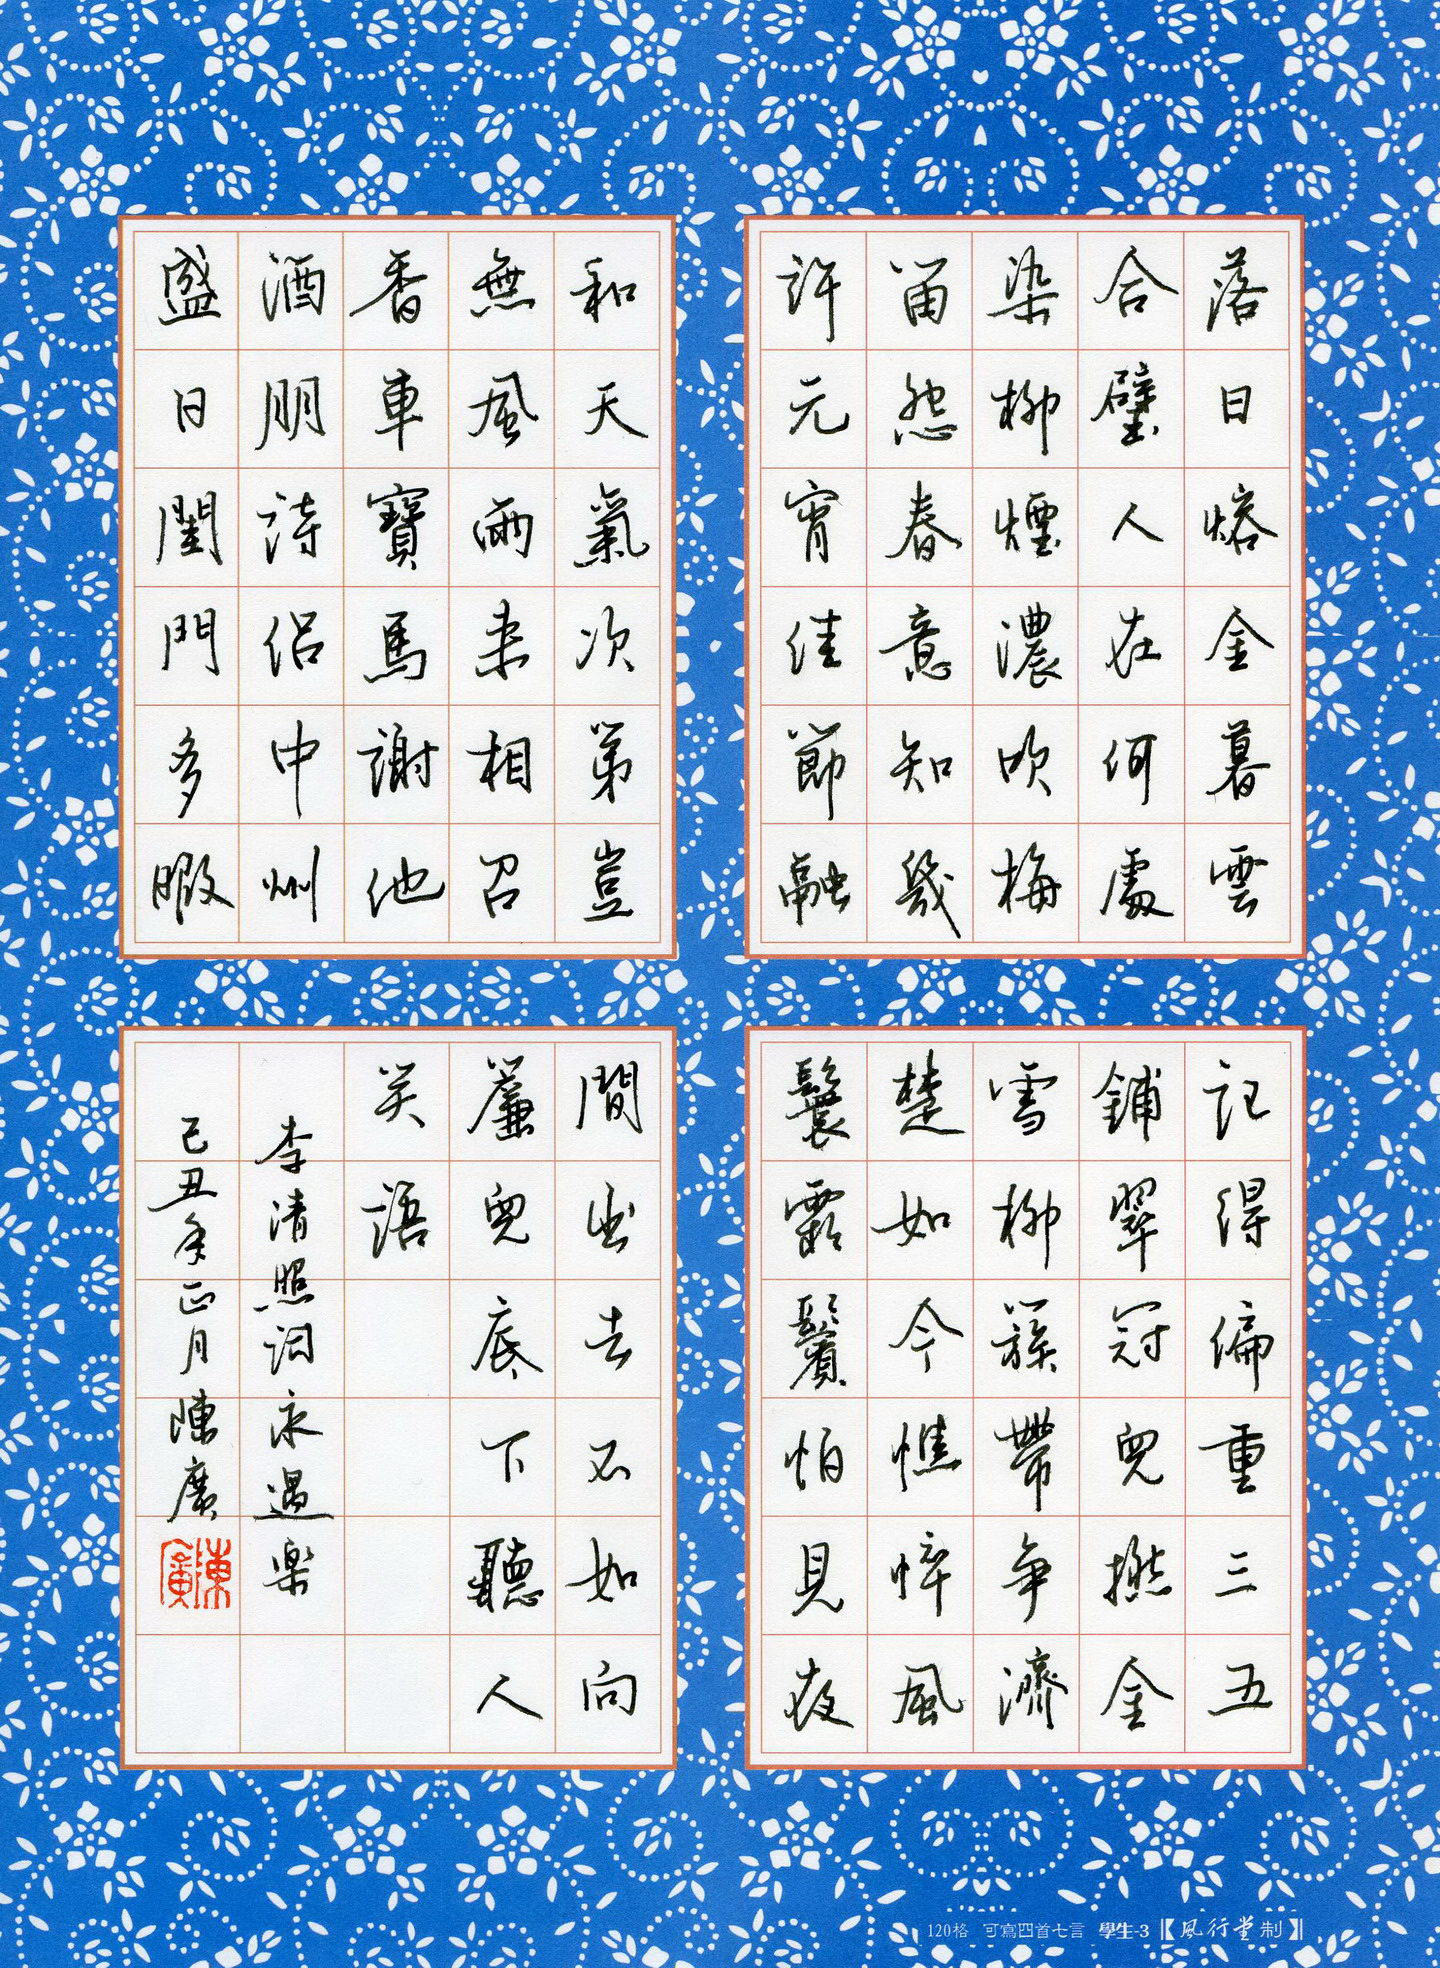 落日熔金暮雲
合璧人在何處
染柳煙濃吹梅
笛怨春意知幾
許元宵佳節融
和天氣次第豈
無風雨来相召
香車寶馬謝他
酒朋詩侶中州
盛日閨門多暇
記得偏重三五
鋪翠冠兒撚金
雪柳簇帶争濟
楚如今憔悴風
鬟霜鬢怕見夜
間出去不如向
簾兒底下聽人
笑語
李清照詞永遇樂
己丑年正月陳廣
陳廣
120格 可寫四首七言 學生-3【風行堂制】